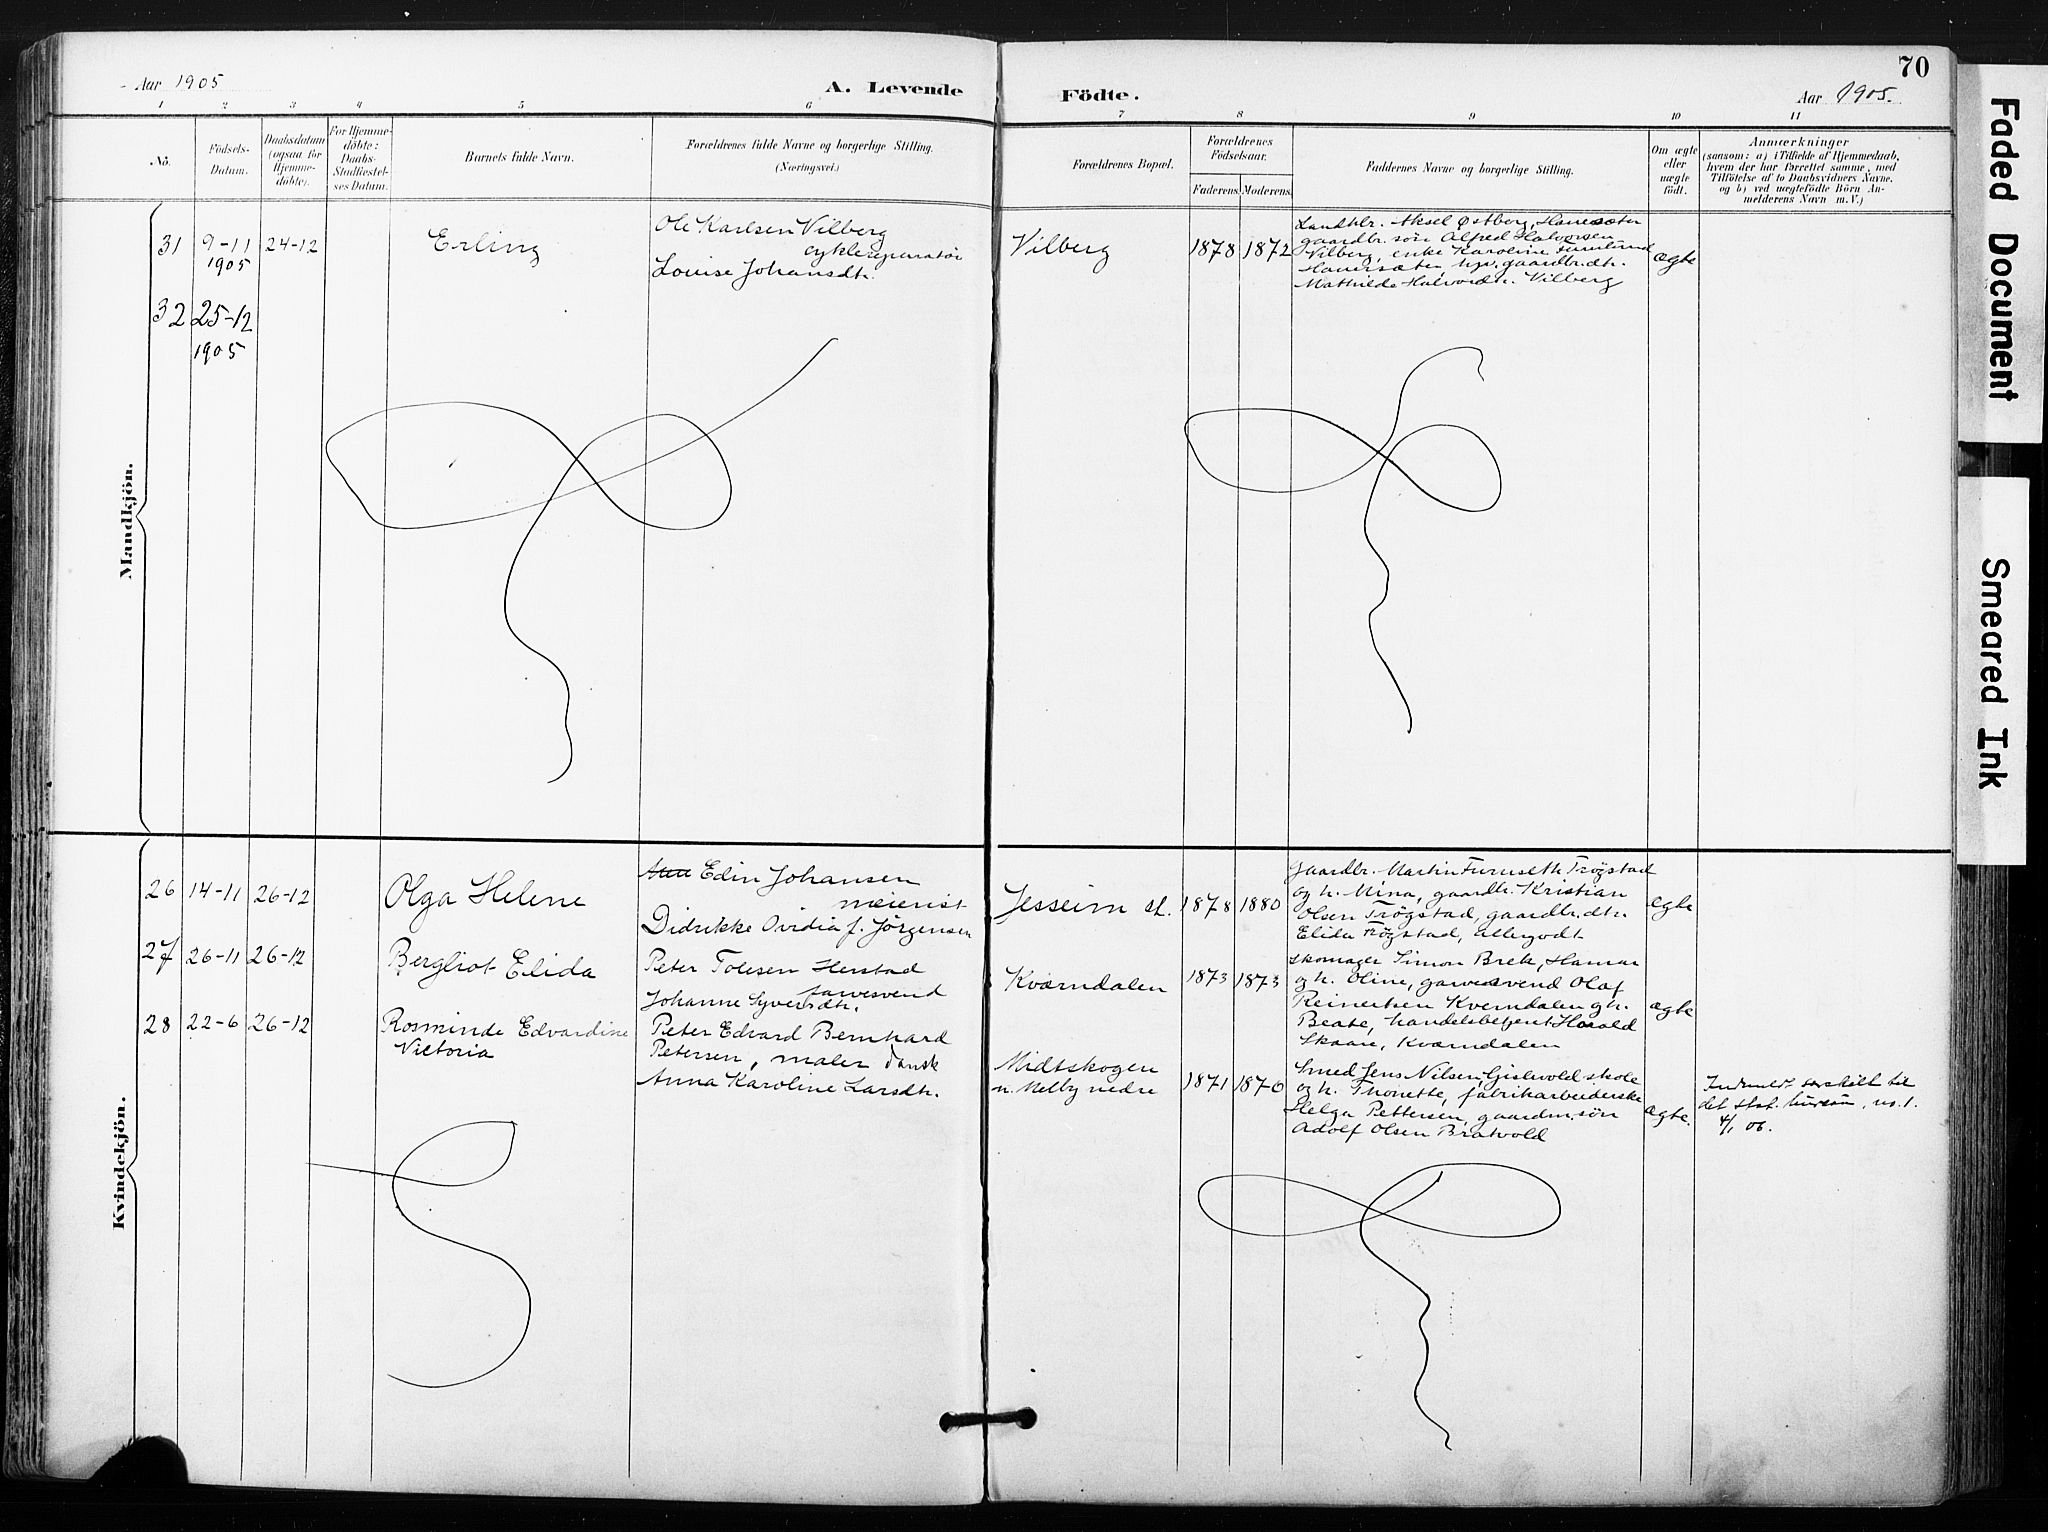 Aar 1905
A. Levende
Födte.
Aar 1905.
70
1 2 3 4 5 6 7 8 9 10 11
No.
Födsels-
Datum.
Daabsdatum
(ogsaa for
Hjemme-
döbte).
For Hjemme-
döbte:
Daabs-
Stadfæstel-
ses Datum.
Barnets fulde Navn.
Forældrenes fulde Navne og borgerlige Stilling.
(Næringsvei.)
Forældrenes Bopæl.
Forældrenes
Födselsaar.
Faderens. Moderens.
Faddernes Navne og borgerlige Stilling.
Om ægte
eller
uægte
födt.
Anmærkninger
(saasom: a) i Tilfælde af Hjemmedaab,
hvem der har forrettet samme, med
Tilföielse af to Daabsvidners Navne,
og b) ved uægtefödte Börn An-
melderens Navn m. V.)
Mandkjön.
31
9-11
1905
24-12
Erling
Ole Karlsen Vilberg
cyklereparatör
Louise Johansdtr.
Vilberg
1878
1872
Landhbr. Aksel Østberg, Hauersæter
gaardbr. søn Alfred Halvorsen
Vilberg, enke Karoline
Hauersæter, gaardbr.dtr.
Mathilde Halvordtr. Vilberg
ægte
32
25-12
1905
Kvindekjön.
26
14-11
26-12
Olga Helene
Edin Johansen
meierist
Didrikke Ovidia f. Jörgensen
Jesseim st.
1878
1880
Gaardbr. Martin Furuseth Trøgstad
og h. Mina, gaardbr. Kristian
Olsen Trøgstad, gaardbr.dtr.
Elida Trøgstad, allegodt
ægte
27
26-11
26-12
Bergliot Elida
Peter Tolesen Herstad
farvesvend
Johanne Syversdtr.
Kværndalen
1873
1873
Skomager Simon Brek, Hamar
og h. Oline, garvesvend Olaf
Reinertsen Kverndalen og h.
Beate, handelsbetjent Harald
Skaare, Kværndalen
ægte
28
22-6
26-12
Rosminde Edvardine
Victoria
Peter Edvard Bernhard
Petersen, maler, dansk
Anna Karoline Larsdtr.
Midtskogen
u. Melby nedre
1871
1870
Smed Jens Nilsen, Gislevold skole
og h. Thonette, fabrikarbeiderske
Helga Pettersen, gaardm. søn
Adolf Olsen Bratvold
ægte.
Indmeldt særskilt til
det stat. bureau, no. 1.
4/1 06.
Faded Document
Smeared Ink